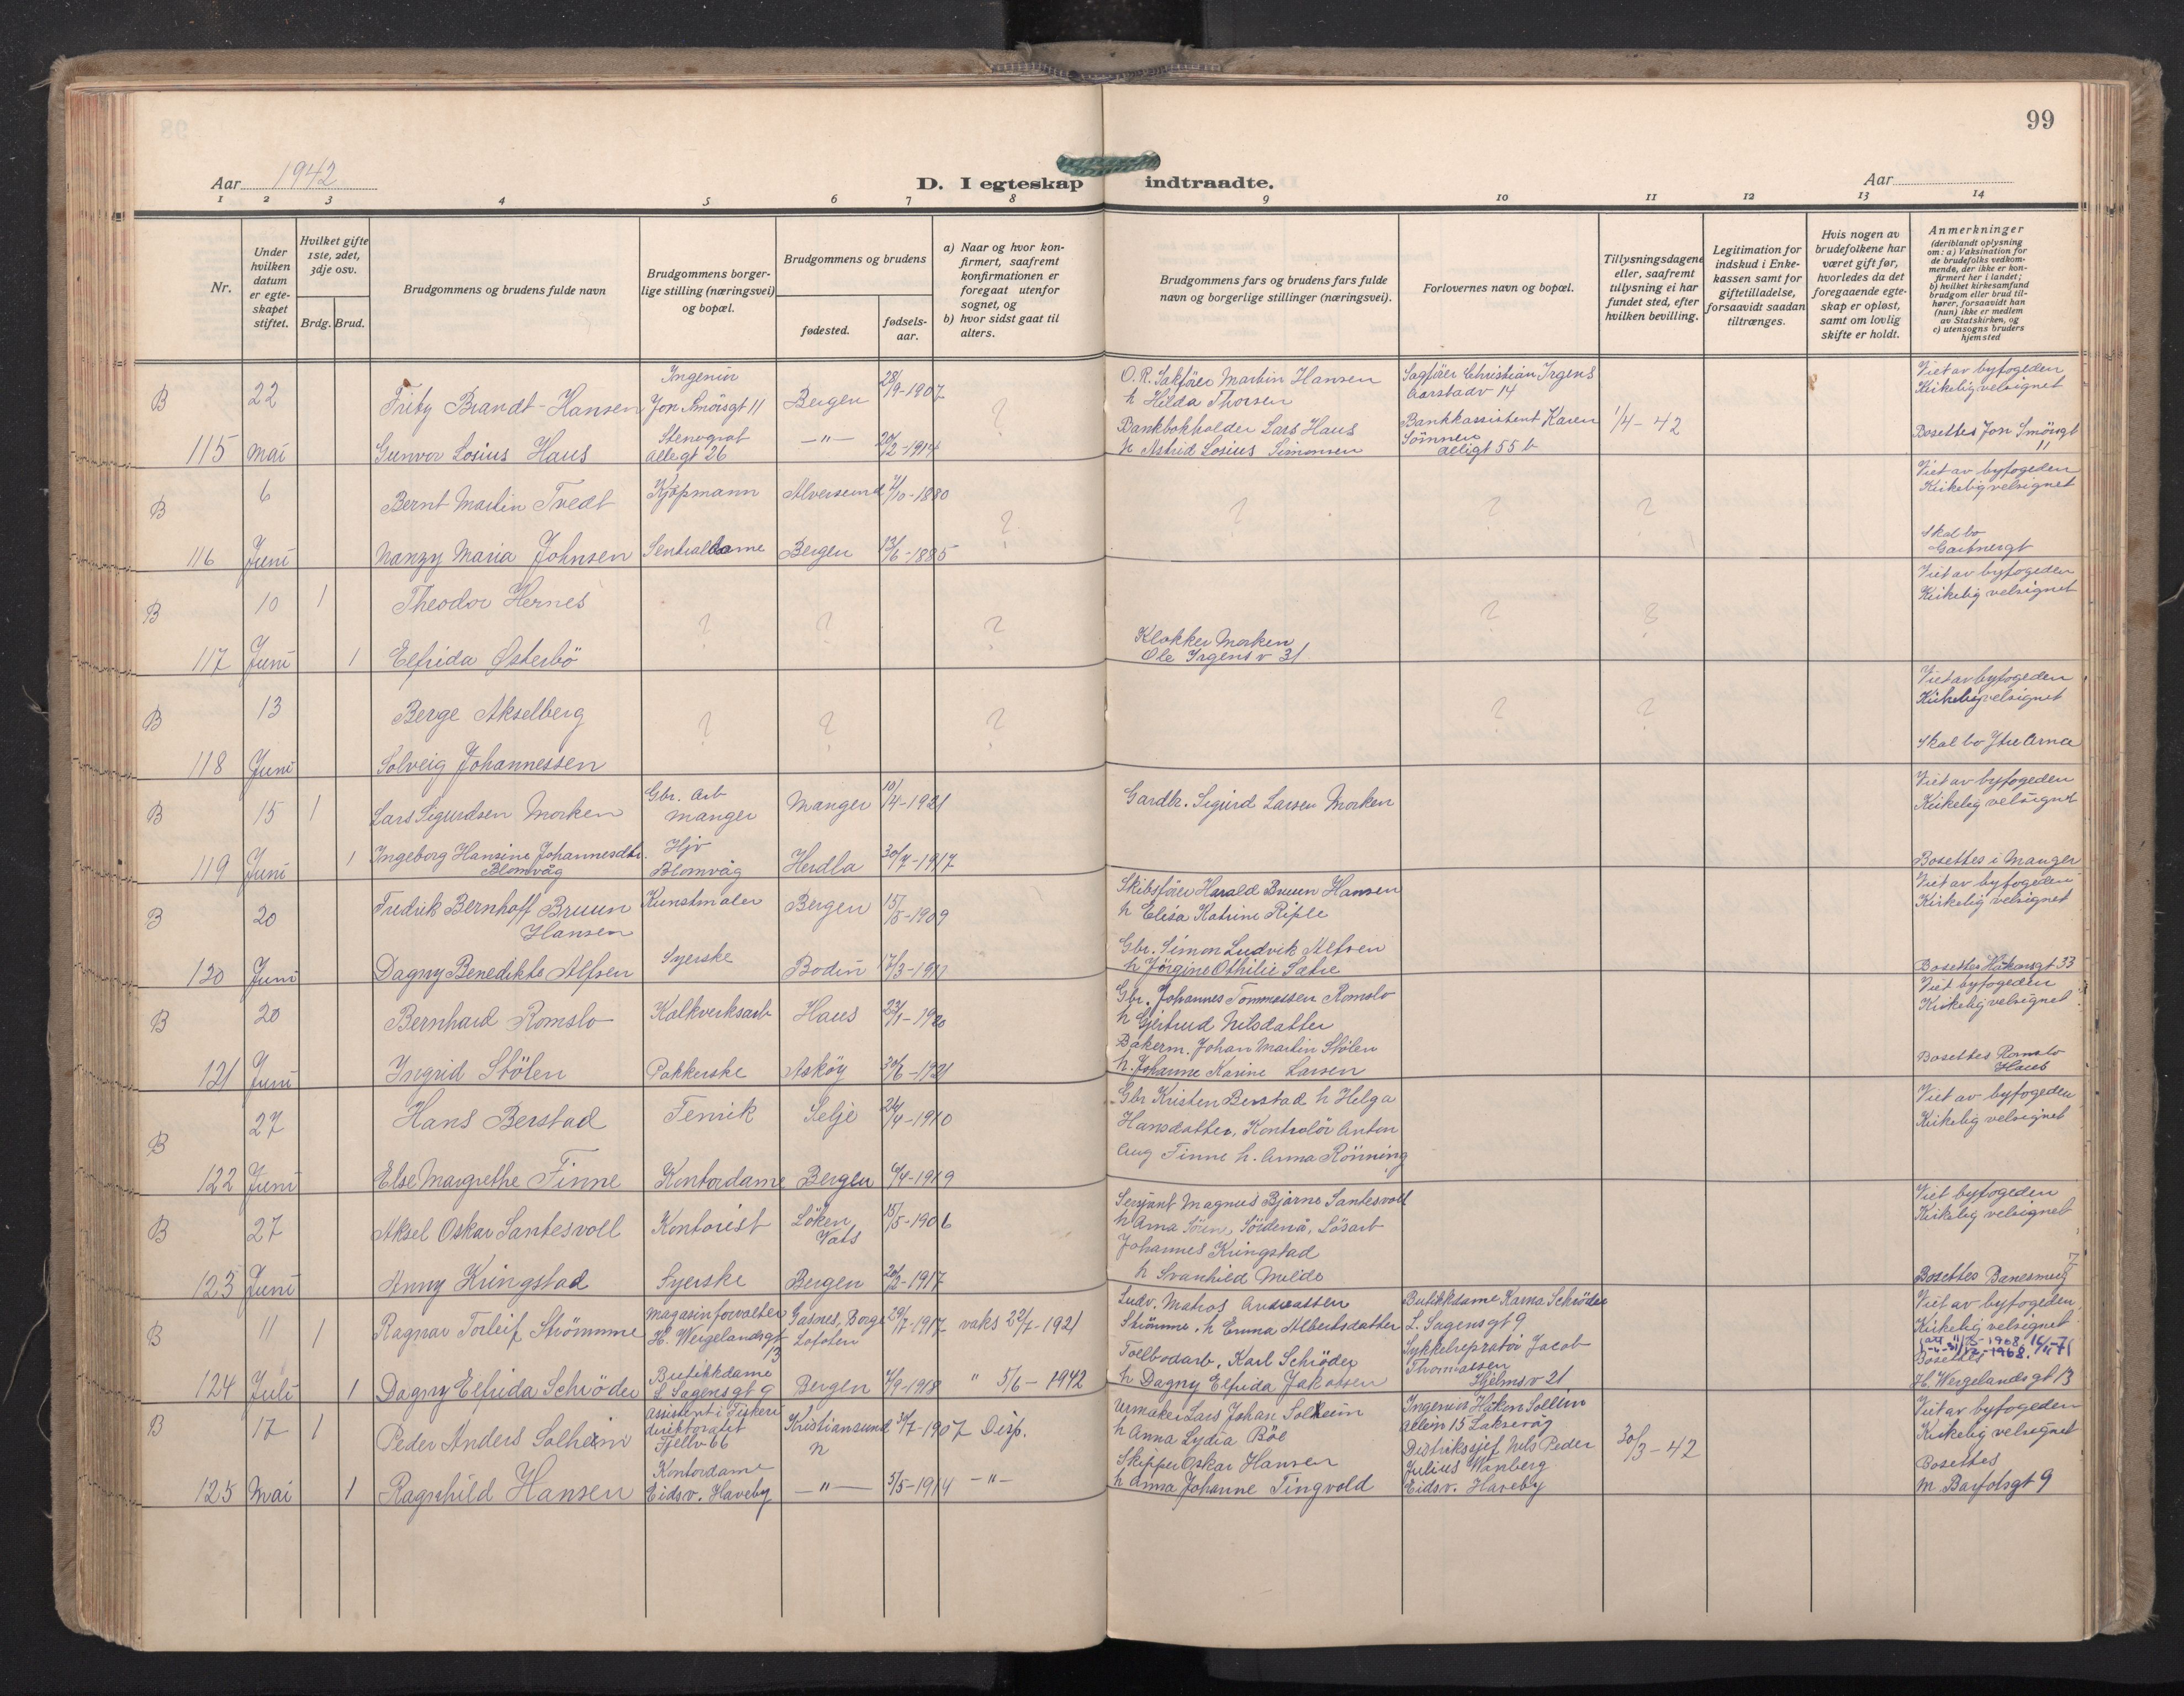 99
Aar 1942
D. I egteskap indtraadte.
Aar
1 2 3 4 5 6 7 8 9 10 11 12 13 14
Nr.
Under hvilken datum er egteskapet stiftet.
Hvilket gifte 1ste, 2det, 3dje osv.
Brdg. Brud.
Brudgommens og brudens fulde navn
Brudgommens borgerlige stilling (næringsvei) og bopæl.
Brudgommens og brudens
fødested.
fødselsaar.
a) Naar og hvor konfirmert, saafremt konfirmationen er foregaat utenfor sognet, og
b) hvor sidst gaat til alters.
Brudgommens fars og brudens fars fulde navn og borgerlige stillinger (næringsvei).
Forlovernes navn og bopæl.
Tillysningsdagene eller, saafremt tillysning ei har fundet sted, efter hvilken bevilling.
Legitimation for indskud i Enkekassen samt for giftetilladelse, forsaavidt saadan tiltrænges.
Hvis nogen av brudefolkene har været gift før, hvorledes da det foregaaende egteskap er opløst, samt om lovlig skifte er holdt.
Anmerkninger
(deriblandt oplysning om: a) Vaksination for de brudefolks vedkommende, der ikke er konfirmert her i landet; b) hvilket kirkesamfund brudgom eller brud tilhører, forsaavidt han (hun) ikke er medlem av Statskirken, og c) utensogns bruders hjemsted
B 22 Brandt-Hansen Ingeniør Jon Smörsgt 11 Bergen 28/9-1907 ? O.R. Sakförer Martin Hansen h Hilda Thorsen Sagförer Christian Irgens Aarstadv 14 Viet av byfogeden Kirkelig velsignet
115 Mai Gunvor Losius Haus Stenograf Allegt 26 -"- 20/2-1914 Bankbokholder Lars Haus h Astrid Losius Simonsen Bankkassistent Karen Sömnen Allegt 55 b 1/4-42 Bosettes Jon Smörsgt 11
B 6 Bernt Martin Tvedt Kjøpmann Alversund /10-1880 ? ? ? ? Viet av byfogeden Kirkelig velsignet
116 Juni Nanzy Maria Johnsen Sentraldame Bergen 13/6-1885 Skal bo Gartnergt
B 10 1 Theodor Hernes ? ? ? ? ? Viet av byfogeden Kirkelig velsignet
117 Juni 1 Elfrida Østerbö Klokker Morken Ole Irgensv 31
B 13 Berge Akselberg ? ? ? ? ? Viet av byfogeden Kirkelig velsignet
118 Juni Solveig Johannessen Skal bo Ytre Arna
B 15 1 Lars Sigurdsen Morken Gbr. Arb Manger Manger 10/4-1921 Gardbr. Sigurd Larsen Morken Viet av byfogeden Kirkelig velsignet
119 Juni 1 Ingeborg Hansine Johannesdtr. Blomvåg Hjv Blomvåg Herdla 30/7-1917 Bosettes i Manger
B 20 Fredrik Bernhoff Bruun Hansen Kunstmaler Bergen 15/5-1909 Skibsförer Harald Bruun Hansen h Elisa Katrine Riple Viet av byfogeden Kirkelig velsignet
120 Juni Dagny Benedikte Alfsen Syerske Bodin 17/3-19 Gbr. Simon Ludvik Alfsen h Jörgine Othilie Sætre Bosettes Håkonsgt 33
B 20 Bernhard Romslo Kalkverksarb Haus 23/1-1920 Gbr. Johannes Tommassen Romslo h Gjertrud Nilsdatter Viet byfogeden Kirkelig velsignet
121 Juni Ingrid Stölen Pakkerske Asköy 30/6-1921 Bakerm. Johan Martin Stölen h. Johanne Karine Larsen Bosettes Romslo Haus
B 27 Hans Berstad Fenrik Selje 24/4-1910 Gbr Kristen Berstad h Helga Hansdatter, Kontrolör Anton Viet av byfogeden Kirkelig velsignet
122 Juni Else Margrethe Finne Kontordame Bergen 6/4-1919 Aug Finne h. Anna Rönning
B 27 Aksel Oskar Santesvoll Kontorist Löken Vats 15/5-1906 Sersjant Magnus Bjarne Santesvoll h Arna Viet byfogeden Kirkelig velsignet
123 Juni Anny Kringstad Syerske Bergen 20/2-1917 Lösarb Johannes Kringstad h Svanhild Milde Bosettes
B 11 1 Ragnar Torleif Strömme Magasinforvalter H. Wergelandsgt 13 Gasnes, Borge Lofoten 29/7-1917 vaks 22/7-1921 Ludv. Matros Andreassen Strömme. h Emma Albertsdatter Butikkdame Karna Schröder L. Sagensgt 9 Viet av byfogeden Kirkelig velsignet
124 Juli 1 Dagny Elfrida Schröder Butikkdame L Sagensgt 9 Bergen 4/9-1918 " 5/6-1942 Tollbodarb. Karl Schröder h Dagny Elfrida Jakobsen Sykkelrepratör Jacob Thomassen Hjelmsv 21 Bosettes H. Wergelandsgt 13
B 17 1 Peder Anders Solheim Assistent i Fiskeridirektoratet Fjellv 66 Kristiansund n /7-1907 Disp. Urmaker Lars Johan Solheim h Anna Lydia Böe Ingeniör Håkon Sollim Alleen 15 Laksevåg 30/3-42 Viet av byfogeden Kirkelig velsignet
125 Mai 1 Ragnhild Hansen Kontordame Eidsv. Haveby -"- 5/5-1914 -"- Skipper Oskar Hansen h Anna Johanne Tingvold Distriktssjef Nils Peder Julius Winberg Eidsv. Haveby Bosettes M. Barfotsgt 9